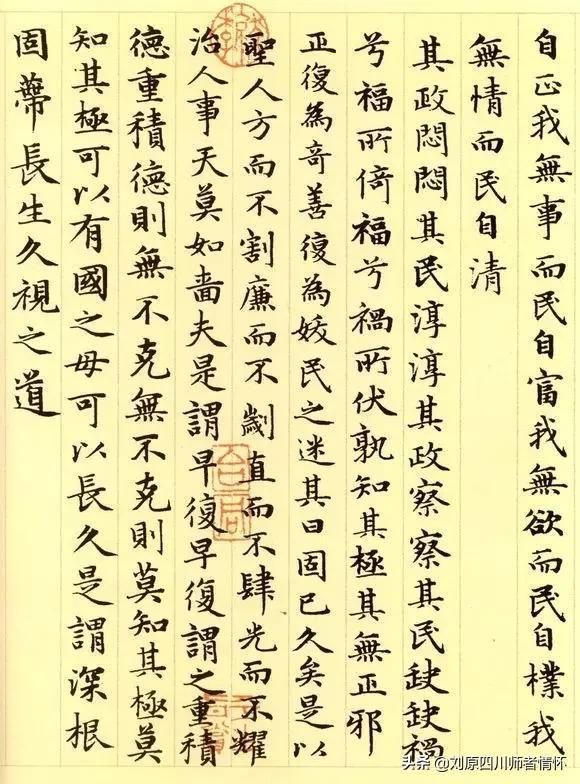 自正我無事而民自富我無欲而民自樸我
無情而民自清
其政悶悶其民淳淳其政察察其民缺缺禍
兮福所倚福兮禍所伏孰知其極其無正邪
正復為奇善復為妖民之迷其日固已久矣是以
聖人方而不割廉而不劌直而不肆光而不耀
治人事天莫如嗇夫是謂早復早復謂之重積
德重積德則無不克無不克則莫知其極莫
知其極可以有國之母可以長久是謂深根
固蔕長生久視之道
头条 @刘原四川师者情怀